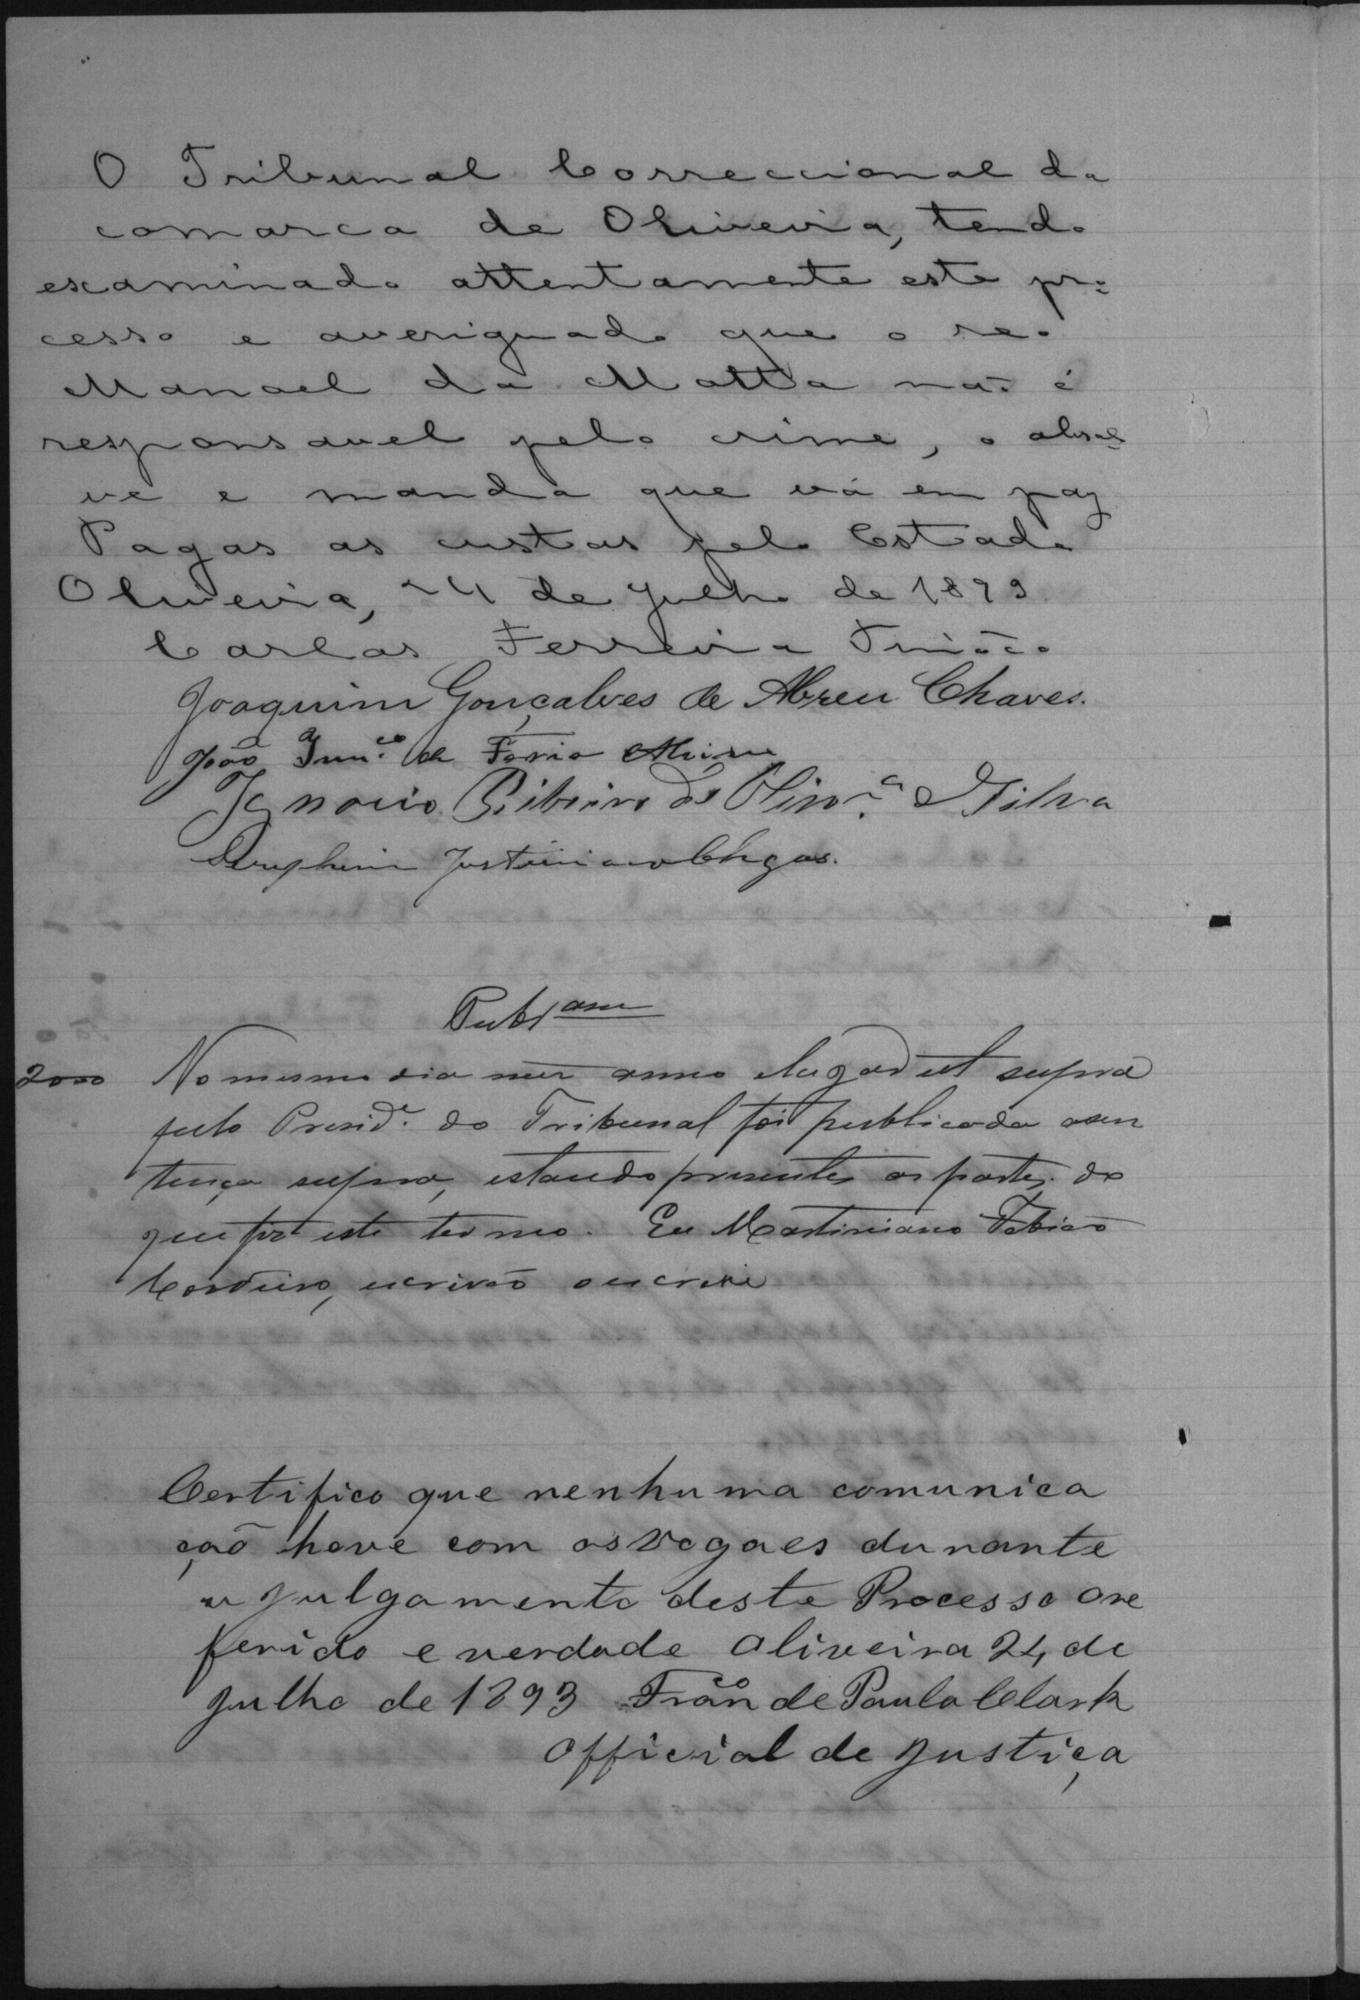 O Tribunal Correccional da
comarca de Oliveira, tendo
examinado attentamente este pro=
cesso e averiguado que o reo
Manoel da Matta não é
responsavel pelo crime, o absol
ve e manda que vá em paz
Pagas as custas pelo Estado
Oliveira, 24 de Julho de 1893
Carlos Ferreira Tinôco
Joaquim Gonçalves de Abreu Chaves.
João de Faria
Ignacio Ribeiro de Olivr.ª e Silva
Seraphim Justiniano Chagas.
Publ.am
2000 No mesmo dia mez anno e lugar ut supra
pelo Presid.e do Tribunal foi publicada a sen
tença supra, estando presentes as partes, do
que fiz este termo. Eu Martiniano Fabião
Cordeiro, escrivão o escrevi
Certifico que nenhuma comunica
ção hove com os Vogaes durante
u julgamento deste Processo o re
ferido e verdade Oliveira 24 de
julho de 1893 Franco de Paula Clark
Official de justiça